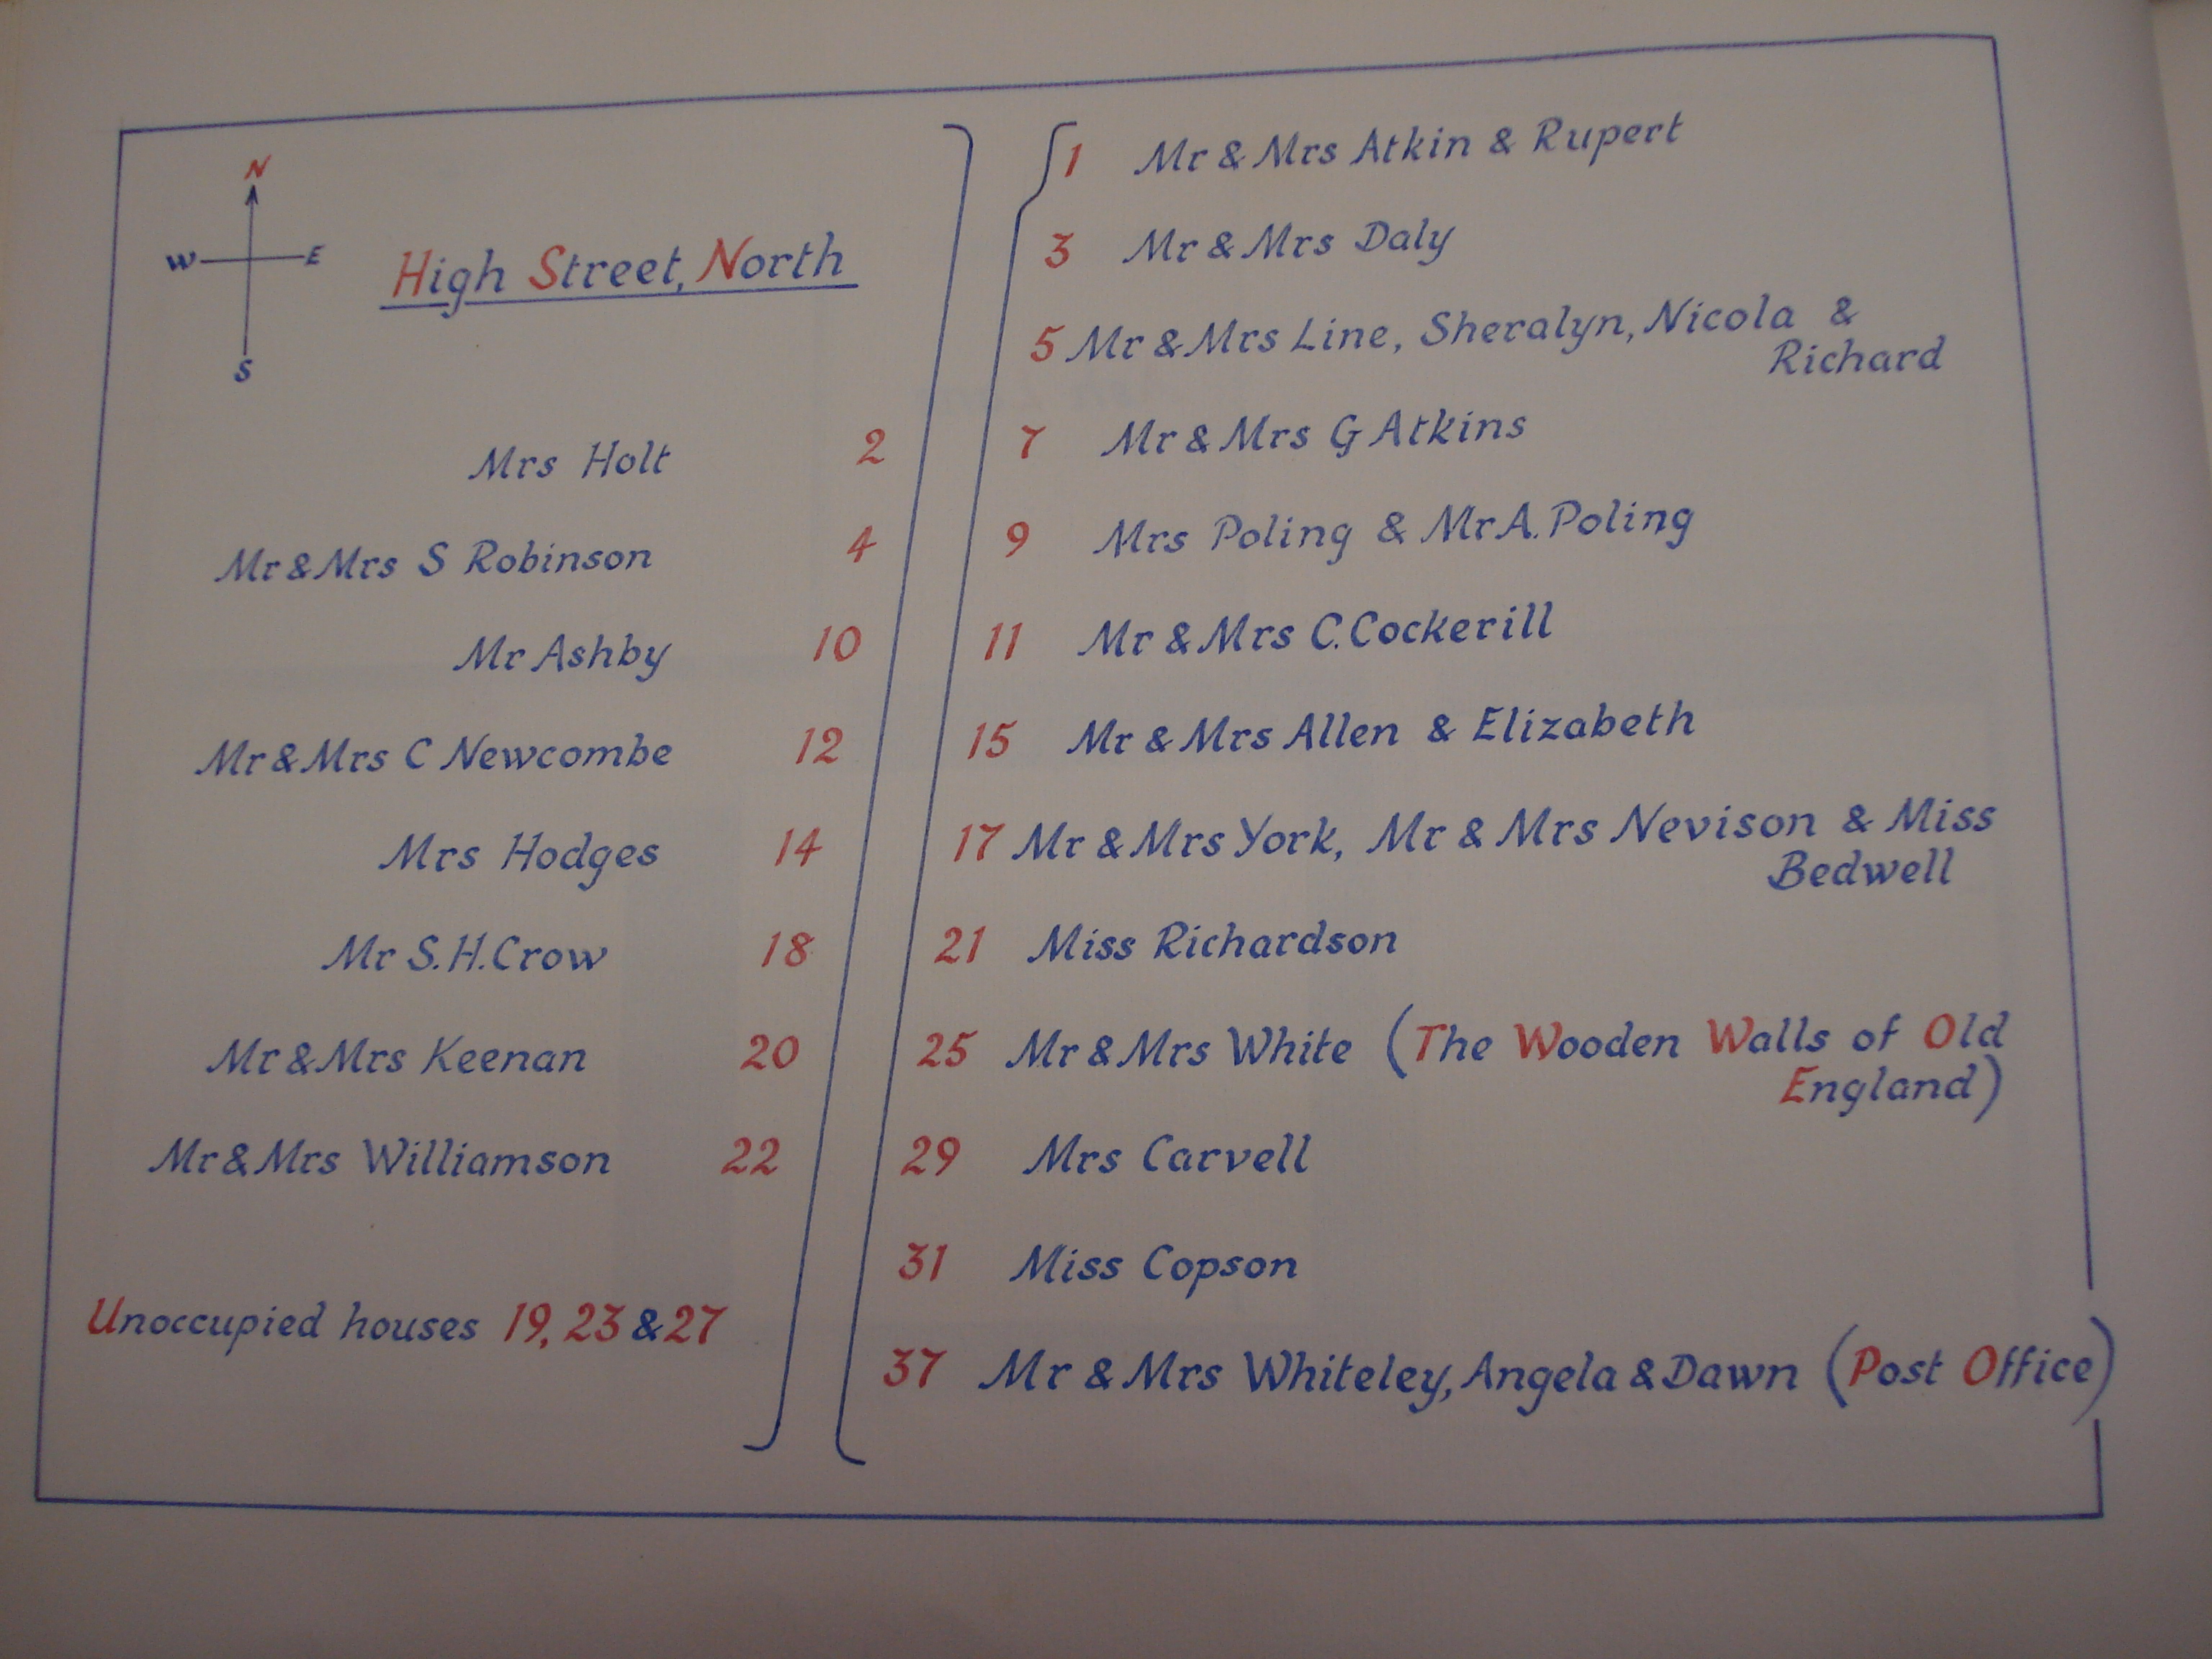 N
W E
S
High Street, North
Mrs Holt 2
Mr & Mrs S Robinson 4
Mr Ashby 10
Mr & Mrs C Newcombe 12
Mrs Hodges 14
Mr S.H.Crow 18
Mr & Mrs Keenan 20
Mr & Mrs Williamson 22
Unoccupied houses 19, 23 & 27
1 Mr & Mrs Atkin & Rupert
3 Mr & Mrs Daly
5 Mr & Mrs Line, Sheralyn, Nicola &
Richard
7 Mr & Mrs G Atkins
9 Mrs Poling & Mr A. Poling
11 Mr & Mrs C. Cockerill
15 Mr & Mrs Allen & Elizabeth
17 Mr & Mrs York, Mr & Mrs Nevison & Miss
Bedwell
21 Miss Richardson
25 Mr & Mrs White (The Wooden Walls of Old
England)
29 Mrs Carvell
31 Miss Copson
37 Mr & Mrs Whiteley, Angela & Dawn (Post Office)